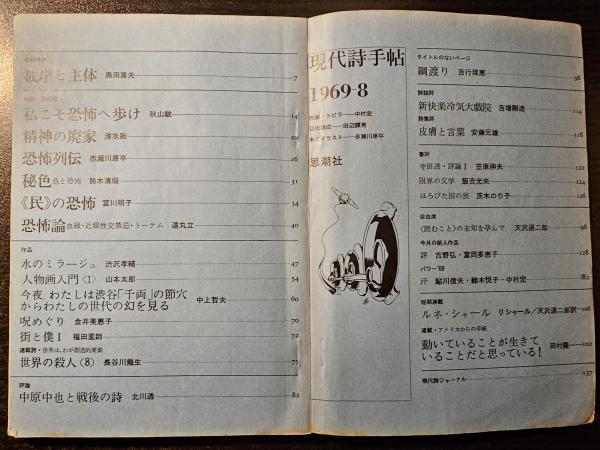 彼岸と主体 黒田喜夫 7
私こそ恐怖へ歩け 秋山駿 14
精神の廃家 清水昶 20
恐怖列伝 赤瀬川原平 26
秘色 色と恐怖 鈴木清順 31
《民》の恐怖 宮川明子 34
恐怖論 血縁・近親性交禁忌・トーテム 遠丸立 40
作品
水のミラージュ 渋沢孝輔 47
人物画入門〈1〉 山本太郎 54
今夜、わたしは渋谷「千両」の節穴
からわたしの世代の幻を見る 中上哲夫 60
呪めぐり 金井美恵子 70
街と僕Ⅰ 福田葉師 72
連載詩・世界は、わが創造的要素
世界の殺人〈8〉 長谷川龍生 75
評論
中原中也と戦後の詩 北川透 82
現代詩手帖
1969-8
表紙・トビラ 中村宏
目次構成 田辺輝男
本文イラスト 赤瀬川原平
思潮社
タイトルのないページ
綱渡り 吉行理恵 98
詩誌評
新快楽冷気大戯院 吉増剛造 114
詩集評
皮膚と言葉 安藤元雄 118
書評
寺田透・評論Ⅰ 笠原伸夫 122
限界の文学 飯吉光夫 124
ほろびた国の旅 茨木のり子 126
自由席
〈読むこと〉の未知を孕んで 天沢退二郎 96
今月の新人作品
評 吉野弘・富岡多恵子 128
パワー'69
汗 鮎川信夫・鈴木悦子・中村宏 表2
短期連載
ルネ・シャール リシャール/天沢退二郎訳 106
連載・アメリカからの手紙
動いていることが生きて
いることだと思っている! 田村隆一 102
現代詩ジャーナル 137